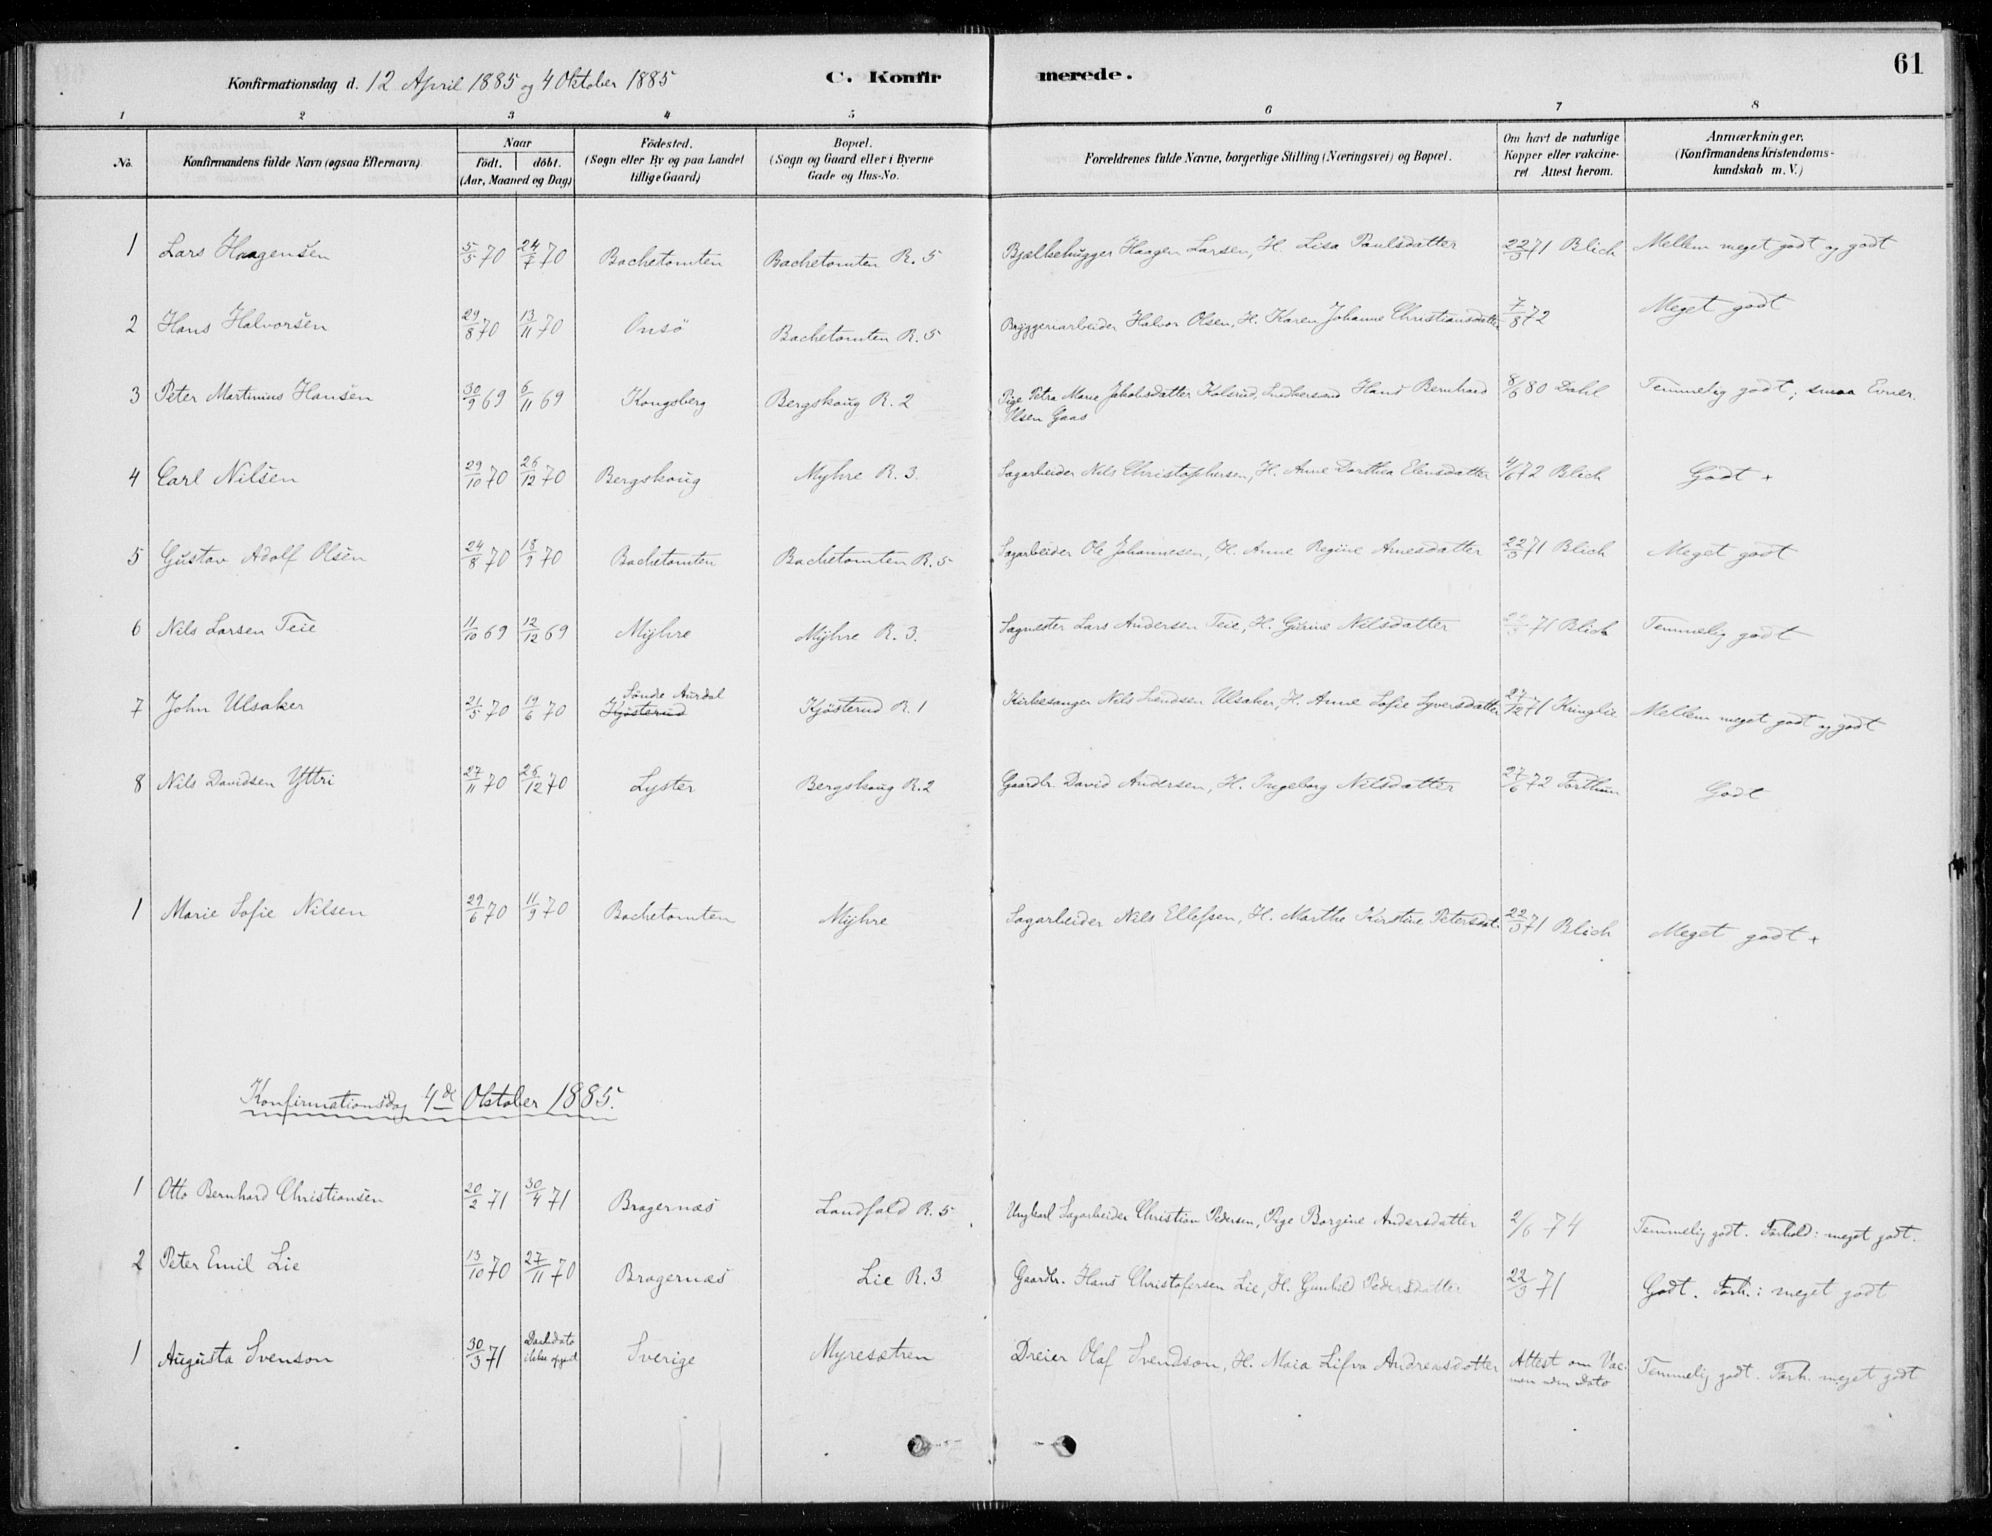 61
Konfirmationsdag d. 12 April 1885 og 4 Oktober 1885 C. Konfir merede.
1 2 3 4 5 6 7 8
No. Konfirmandens fulde Navn (ogsaa Efternavn) Naar födt. döbt. (Aar, Maaned og Dag) Födested. (Sogn eller By og paa Landet tillige Gaard) Bopæl. (Sogn og Gaard eller i Byerne Gade og Hus-No. Forældrenes fulde Navne, borgerlige Stilling (Næringsvei) og Bopæl. Om havt de naturlige Kopper eller vakcineret Attest herom. Anmærkninger. (Konfirmandens Kristendomskundskab m. V.)
1 Lars Haagensen 5/5 70 24/7 70 Bachetomten Bachetomten R. 5 Bjælkehugger Haagen Larsen, H. Lisa Paulsdatter 22/3 71 Blich Mellem meget godt og godt
2 Hans Halvorsen 29/8 70 13/11 70 Onsö Bachetomten R. 5 Bryggeriarbeider Halvor Olsen, H. Karen Johanne Christiansdatter 7/8 72 Meget godt
3 Peter Martinius Hansen 30/9 69 6/11 69 Kongsberg Bergskoug R. 2 Pige Petra Marie Jakobsdatter Kolsrud, Snedkersvend Hans Bernhard
Olsen Gaas 8/6 80 Dahl Temmelig godt; smaa Evner.
4 Carl Nilsen 29/10 70 26/12 70 Bergskoug Myhre R. 3. Sagarbeider Nils Christophersen, H. Anne Dorthea Elensdatter 4/6 72 Blich Godt +
5 Gustav Adolf Olsen 24/8 70 18/9 70 Bachetomten Bachetomten R. 5 Sagarbeider Ole Johannesen, H. Anne Regine Arnesdatter 22/3 71 Blich Meget godt
6 Nils Larsen Teie 11/10 69 12/12 69 Myhre Myhre R. 3. Sagmester Lars Andersen Teie, H. Gurine Nilsdatter 22/3 71 Blich Temmelig godt
7 John Ulsaker 21/5 70 19/6 70 Söndre Aurdal Kjösterud Kjösterud R. 1 Kirkesanger Nils Svendsen Ulsaker, H. Anne Sofie Syversdatter 27/12 71 Kringlie Mellem meget godt og godt
8 Nils Davidsen Yttri 27/11 70 26/12 70 Lyster Bergskoug R. 2 Gaardbr. David Andersen, H. Ingeborg Nilsdatter 27/6 72 Forthun Godt
1 Marie Sofie Nilsen 29/6 70 11/9 70 Bachetomten Myhre Sagarbeider Nils Ellefsen, H. Marthe Kirstine Petersdat. 22/3 71 Blich Meget godt +
Konfirmationsdag 4de Oktober 1885.
1 Otto Bernhard Christiansen 20/2 71 30/4 71 Bragernæs Landfald R. 5 Ungkarl Sagarbeider Christian Pedersen, Pige Borgine Andersdatter 2/6 74 Temmelig godt. Forhold: meget godt.
2 Peter Emil Lie 13/10 70 27/11 70 Bragernæs Lie R. 3 Gaardbr. Hans Christofersen Lie, H. Gunhild Pedersdatter 22/3 71 Godt. Forh.: meget godt
1 Augusta Svenson 30/3 71 Daabsdato ikke opgivet Sverige Myresætren Dreier Olaf Svendson, H. Maia Lifva Andreasdotter Attest om Vac. men uden Dato Temmelig godt. Forh. meget godt